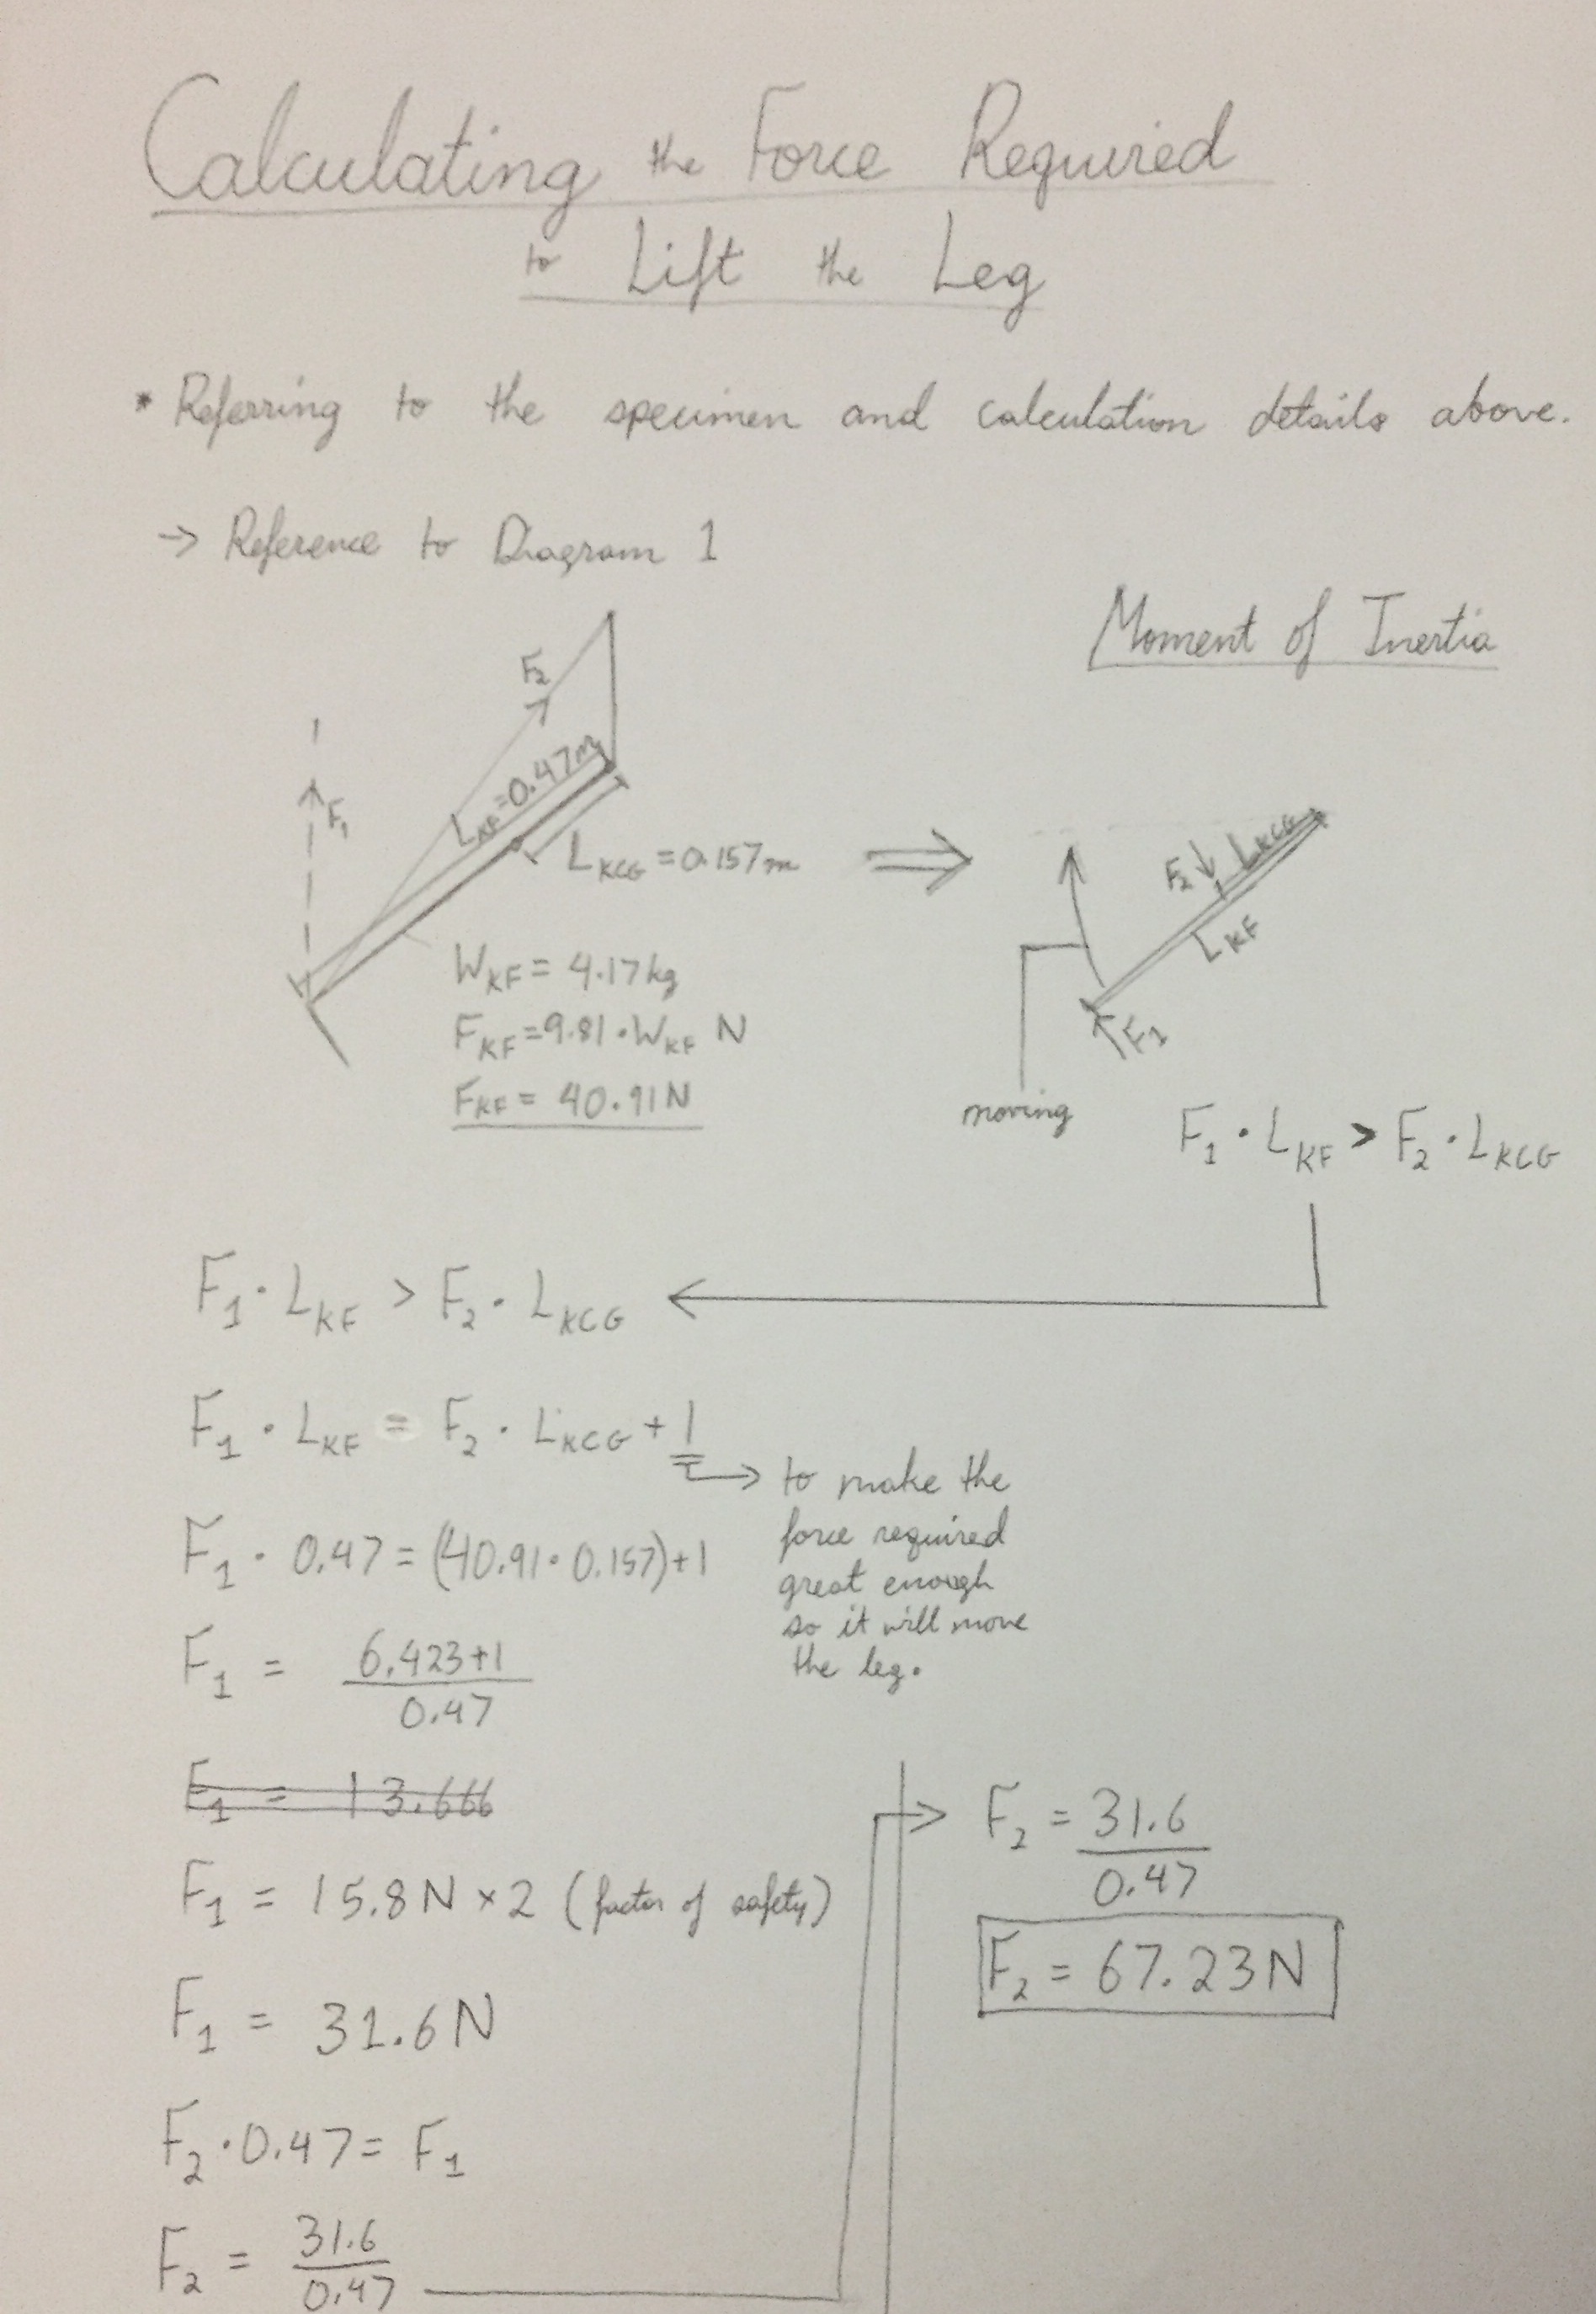 Calculating the Force Required
to Lift the Leg
* Referring to the specimen and calculation details above.
→ Reference to Diagram 1
Moment of Inertia
F₂
F₁
L_KF = 0.47m
L_KCG = 0.157m
W_KF = 4.17kg
F_KF = 9.81 · W_KF N
F_KF = 40.91N
⇒
F₂ ↓ L_KCG
L_KF
F₁
moving
F₁ · L_KF > F₂ · L_KCG
F₁ · L_KF > F₂ · L_KCG
F₁ · L_KF = F₂ · L_KCG + 1
→ to make the
force required
great enough
so it will move
the leg.
F₁ · 0.47 = (40.91 · 0.157)+1
F₁ = 6.423+1
0.47
F₁ = 13.666
F₁ = 15.8N × 2 (factor of safety)
F₁ = 31.6N
F₂ · 0.47 = F₁
F₂ = 31.6
0.47
→ F₂ = 31.6
0.47
F₂ = 67.23N